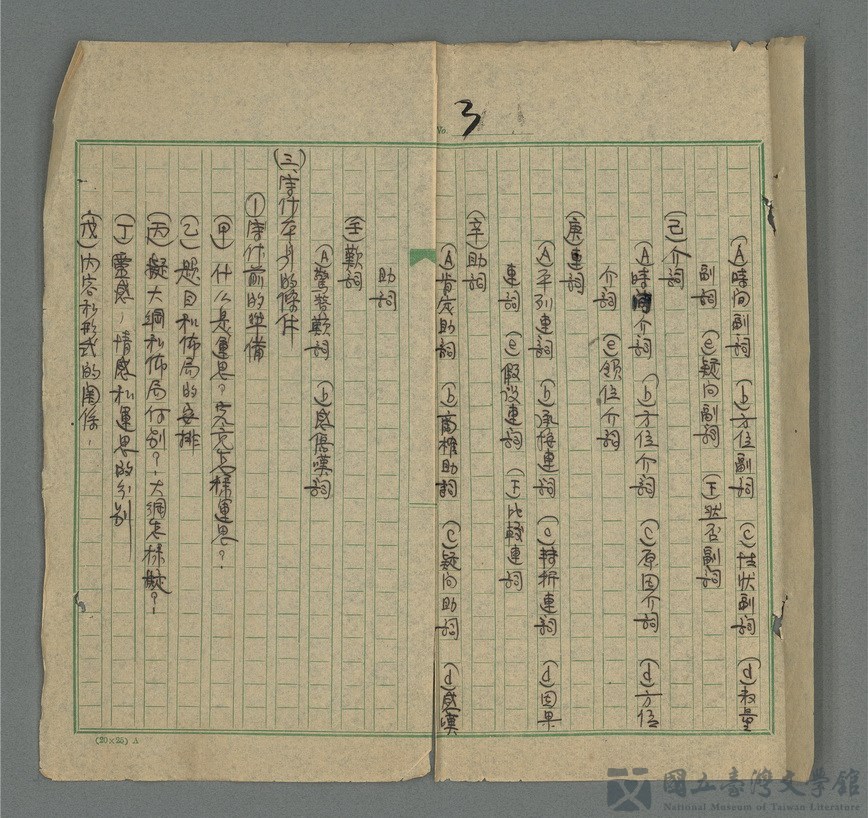 No. 3
(A)時间副詞 (b)方位副詞 (c)性狀副詞 (d)数量
副詞 (e)疑问副詞 (F)狀否副詞
(己)介詞
(A)時间介詞 (b)方位介詞 (c)原因介詞 (d)方位
介詞 (e)領位介詞
(庚)連詞
(A)平列連詞 (b)承接連詞 (c)轉折連詞 (d)因果
連詞 (e)假设連詞 (F)比較連詞
(辛)助詞
(A)肯定助詞 (b)商榷助詞 (c)疑问助詞 (d)感嘆
助詞
(壬)歎詞
(A)驚答歎詞 (b)感傷嘆詞
(三)寫作本身的條件
(1)寫作前的準備
(甲)什么是運思?究竟怎樣運思?.
(乙)題目和佈局的安排
(丙)擬大綱和佈局何别?.大綱怎樣擬?.
(丁)靈感,情感和運思的分别
(戊)内容和形式的関係.
(20×25) A
國立臺灣文學館
National Museum of Taiwan Literature